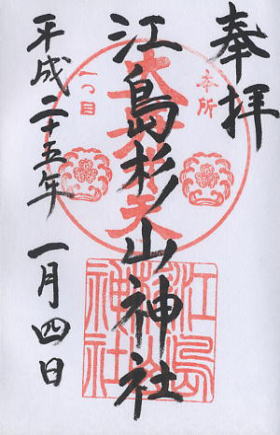 奉拝
本所
一つ目
江島杉山神社
江島
神社
平成二十五年 一月四日